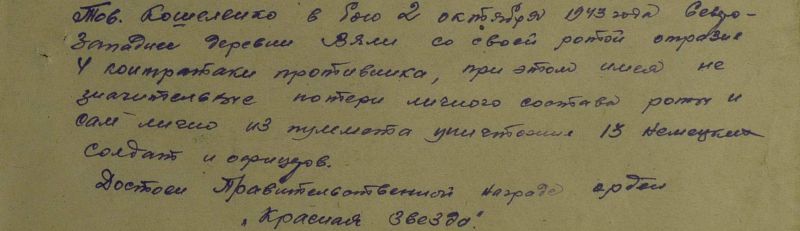 Тов. Кошеленко в бою 2 октября 1943 года Северо-
Западнее деревни Вяли со своей ротой отразил
4 контратаки противника, при этом имея не
значительные потери личного состава роты и
сам лично из пулемета уничтожил 13 немецких
солдат и офицеров.
Достоен Правительственной награде орден
"Красная звезда".